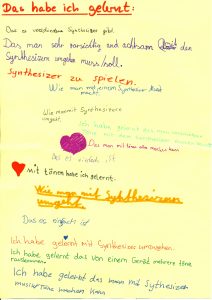 Das habe ich gelernt:
Das es verschiedene Synthesizer gibt.
Das man sehr vorsichtig und achtsam mit den
Synthesizern umgehen muss/soll.
Synthesizer zu spielen.
Wie man mit einem Synthesizer Musik
macht.
Wie man mit Synthesizern
umgeht.
Ich habe gelernt das man
Das man mit töne alles machen kann
Das es einfach ist
mit tönen habe ich gelernt.
Wie man mit Synthesizern
umgeht.
Das es einfach ist
Ich habe gelernt mit Synthesizer umzugehen.
Ich habe gelernt das von einem Gerät mehrere töne
rauskommen.
Ich habe gelernt das man mit Sythesizer
musik/Töne machen kann